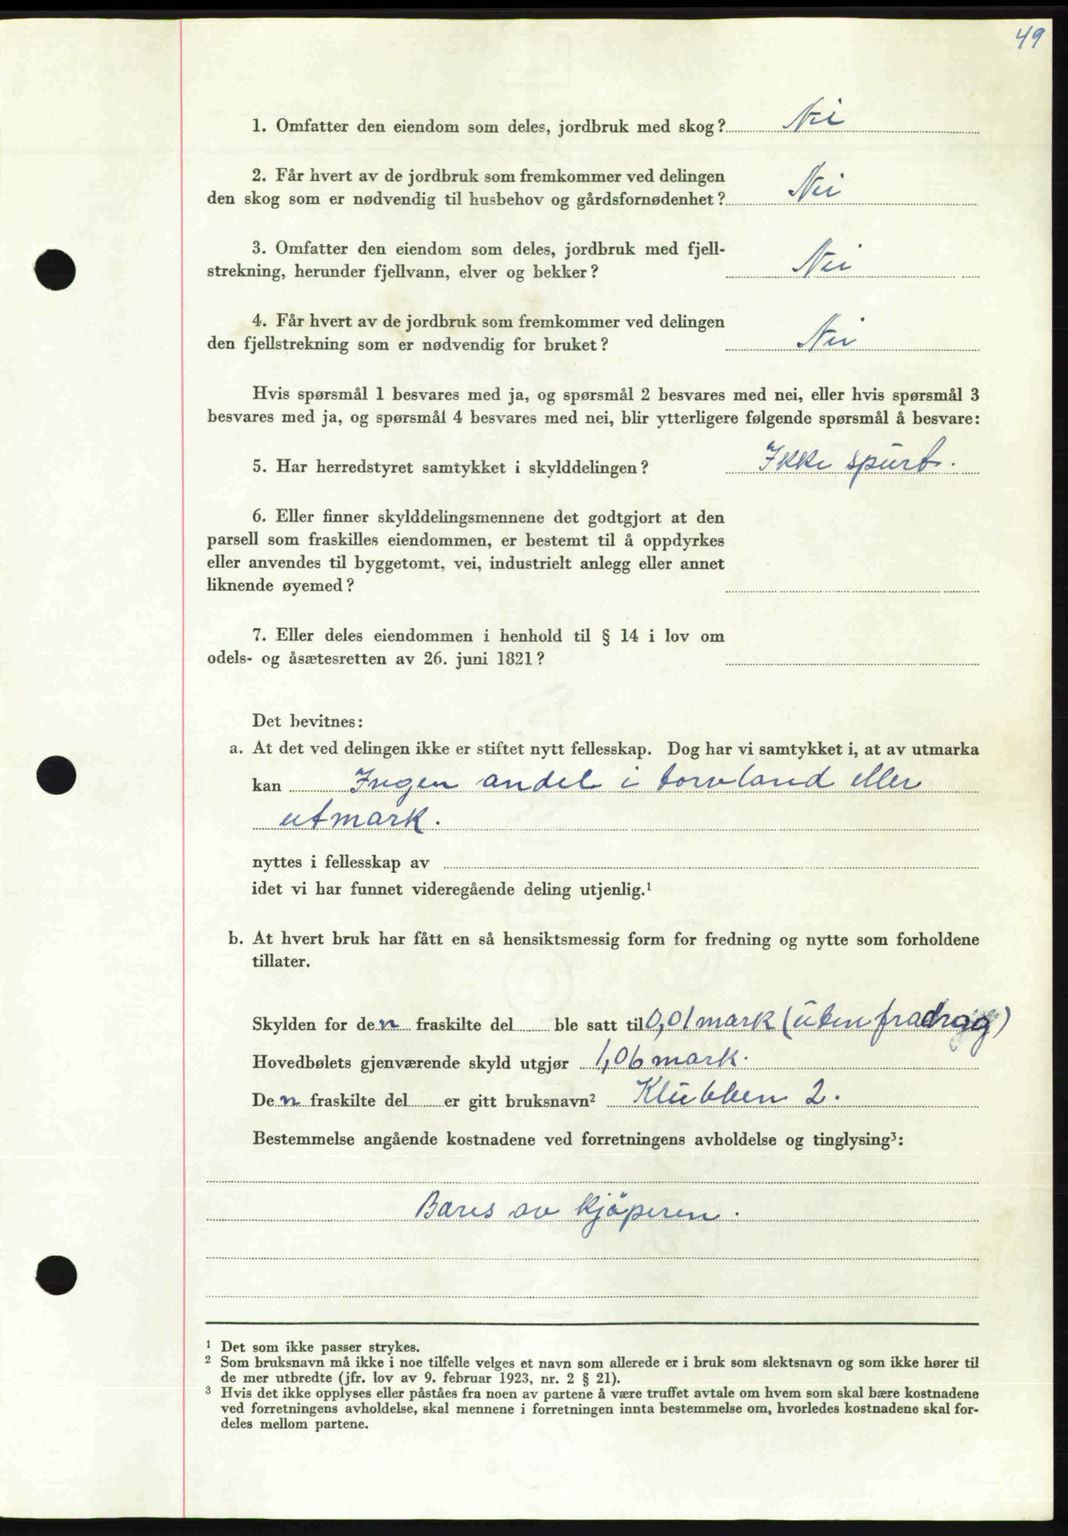 49
1. Omfatter den eiendom som deles, jordbruk med skog? Nei
2. Får hvert av de jordbruk som fremkommer ved delingen
den skog som er nødvendig til husbehov og gårdsfornødenhet? Nei
3. Omfatter den eiendom som deles, jordbruk med fjell-
strekning, herunder fjellvann, elver og bekker? Nei
4. Får hvert av de jordbruk som fremkommer ved delingen
den fjellstrekning som er nødvendig for bruket? Nei
Hvis spørsmål 1 besvares med ja, og spørsmål 2 besvares med nei, eller hvis spørsmål 3
besvares med ja, og spørsmål 4 besvares med nei, blir ytterligere følgende spørsmål å besvare:
5. Har herredstyret samtykket i skylddelingen? Ikke spurt.
6. Eller finner skylddelingsmennene det godtgjort at den
parsell som fraskilles eiendommen, er bestemt til å oppdyrkes
eller anvendes til byggetomt, vei, industrielt anlegg eller annet
liknende øyemed?
7. Eller deles eiendommen i henhold til § 14 i lov om
odels- og åsætesretten av 26. juni 1821?
Det bevitnes:
a. At det ved delingen ikke er stiftet nytt fellesskap. Dog har vi samtykket i, at av utmarka
kan Ingen andel i torvland eller
utmark.
nyttes i fellesskap av
idet vi har funnet videregående deling utjenlig.¹
b. At hvert bruk har fått en så hensiktsmessig form for fredning og nytte som forholdene
tillater.
Skylden for den fraskilte del ble satt til 0,01 mark (uten fradrag)
Hovedbølets gjenværende skyld utgjør 1,06 mark.
Den fraskilte del er gitt bruksnavn² Klubben 2.
Bestemmelse angående kostnadene ved forretningens avholdelse og tinglysing³:
Bæres av kjøperen.
¹ Det som ikke passer strykes.
² Som bruksnavn må ikke i noe tilfelle velges et navn som allerede er i bruk som slektsnavn og som ikke hører til
de mer utbredte (jfr. lov av 9. februar 1923, nr. 2 § 21).
³ Hvis det ikke opplyses eller påståes fra noen av partene å være truffet avtale om hvem som skal bære kostnadene
ved forretningens avholdelse, skal mennene i forretningen innta bestemmelse om, hvorledes kostnadene skal for-
deles mellom partene.